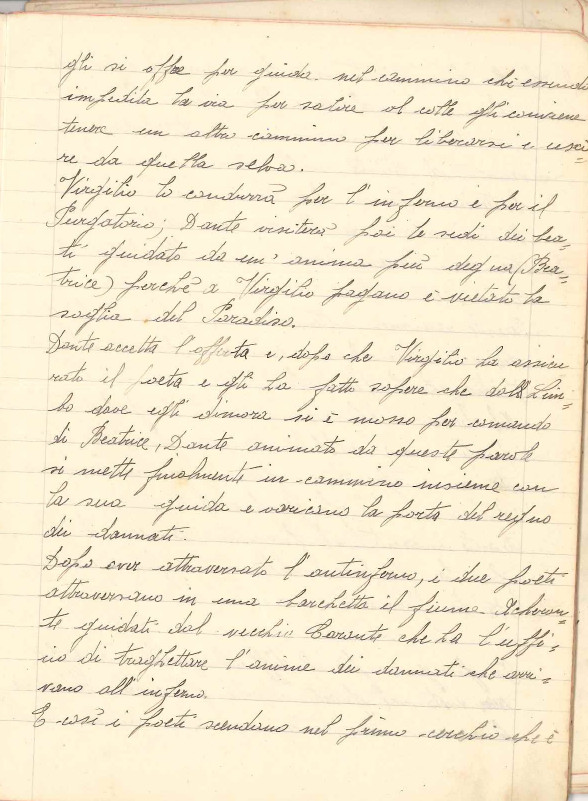 gli si offre per guida nel cammino chè essendo
impedita la via per salire al colle gli conviene
tenere un altro cammino per liberarsi e usci=
re da quella selva.
Virgilio lo condurrà per l'inferno e per il
Purgatorio; Dante visiterà poi le sedi dei bea=
ti guidato da un' anima più degna (Bea=
trice) perchè a Virgilio pagano è vietato la
soglia del Paradiso.
Dante accetta l'offerta e, dopo che Virgilio ha assicu
rato il poeta e gli ha fatto sapere che dal Lim=
bo dove egli dimora si è mosso per comando
di Beatrice, Dante animato da queste parole
si mette finalmente in cammino insieme con
la sua guida e varicano la porta del regno
dei dannati.
Dopo aver attraversato l'antinferno, i due poeti
attraversano in una barchetta il fiume Acheron=
te guidati dal vecchio Caronte che ha l'uffi=
cio di traghettare l'anime dei dannati che arri=
vano all'inferno.
E così i poeti scendono nel primo cerchio che è